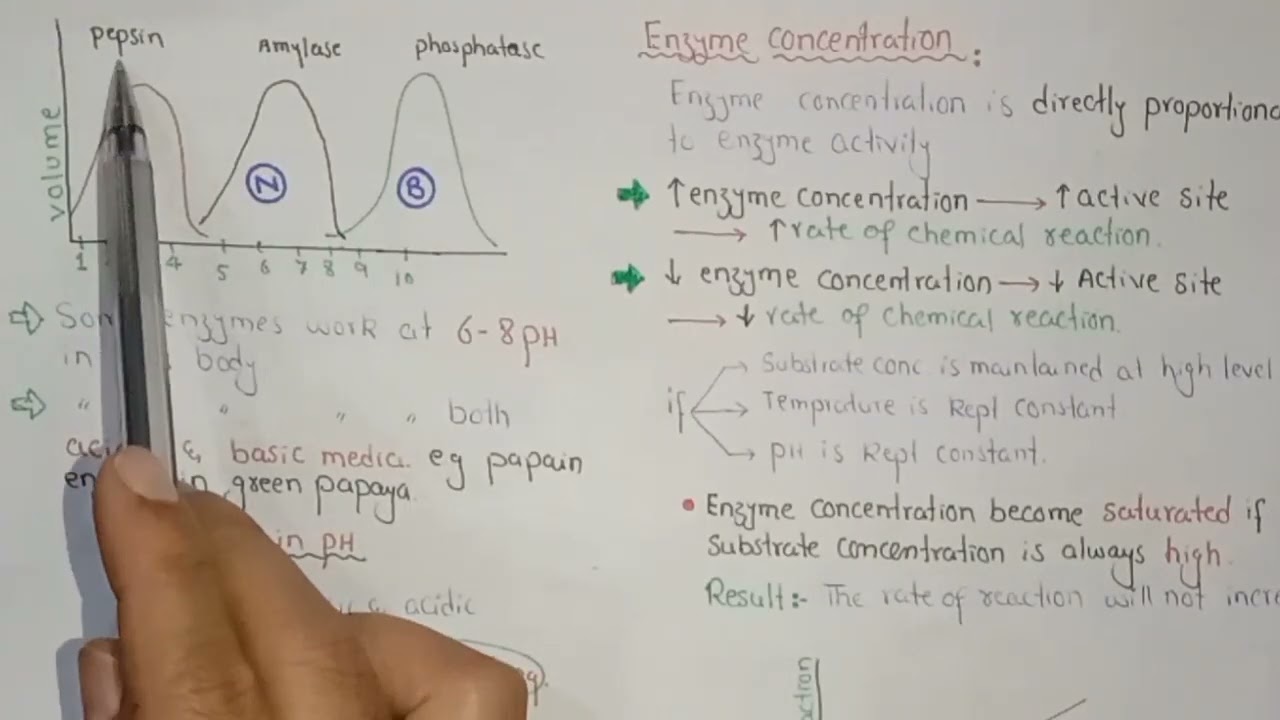 pepsin
Amylase
phosphatase
volume
N
B
1 4 5 6 7 8 9 10
enzymes work at 6-8 pH
in body
" " " " both
& basic media. eg papain
in green papaya.
in pH
acidic
Enzyme concentration :
Enzyme concentration is directly
to enzyme activity
↑ enzyme concentration → ↑ active site
→ ↑ rate of chemical reaction.
↓ enzyme concentration → ↓ Active site
→ ↓ rate of chemical reaction.
if
→ Substrate conc is maintained at high level
→ Temprature is Kept constant
→ pH is Kept constant.
• Enzyme concentration become saturated if
substrate concentration is always high.
Result:- The rate of reaction will not